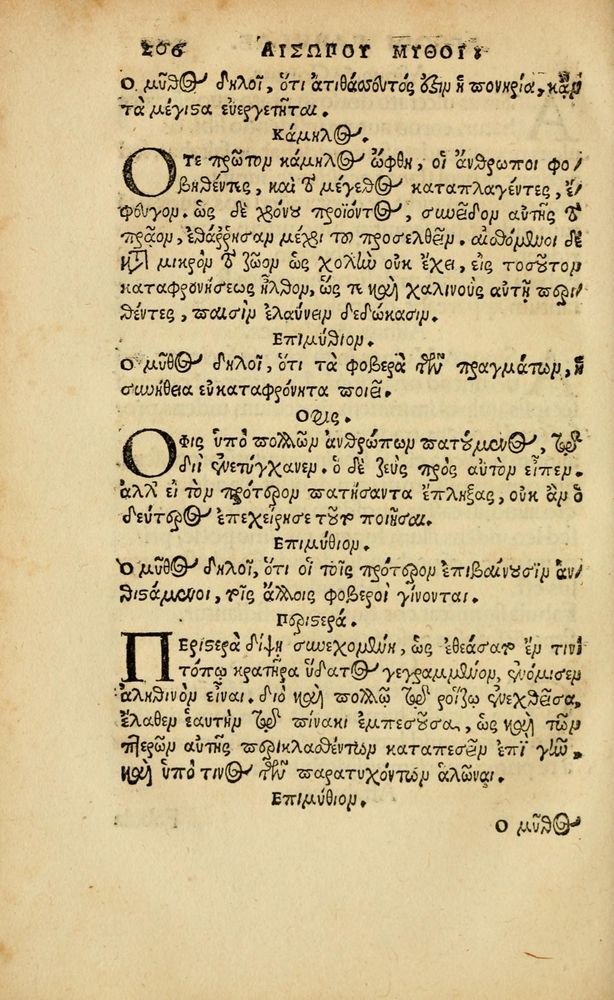 206 ΑΙΣΩΠΟΥ ΜΥΘΟΙ.
Ο μῦθος δηλοῖ, ὅτι ἀτιθάσσευτός ὅξιν ἡ πονηρία, κἂν
τὰ μέγιϛα εὐεργετῆται.
Κάμηλος.
ΟΤΕ πρῶτον κάμηλος ὤφθη, οἱ ἄνθρωποι φο
βηθέντες, καὶ τὸ μέγεθος καταπλαγέντες, ἔ
φευγον. ὡς δὲ χρόνου προϊόντος, συνεῖδον αὐτῆς τὸ
πρᾶον, ἐθάῤῥησαν μέχρι του προσελθεῖν. αἰσθόμενοι δὲ
κατὰ μικρὸν τὸ ζῶον ὡς χολὴν οὐκ ἔχει, εἰς τοσοῦτον
καταφρονήσεως ἦλθον, ὥς τε καὶ χαλινοὺς αὐτῇ περι
θέντες, παισὶν ἐλαύνειν δεδώκασιν.
Επιμύθιον.
Ο μῦθος δηλοῖ, ὅτι τὰ φοβερὰ τῶν πραγμάτων, ἡ
συνήθεια εὐκαταφρόνητα ποιεῖ.
Οφις.
ΟΦις ὑπὸ πολλῶν ἀνθρώπων πατούμενος, τῷ
διὶ ἐνετύγχανεν. ὁ δὲ ζεὺς πρὸς αὐτὸν εἶπεν.
ἀλλ' εἰ τὸν πρότερον πατήσαντα ἔπληξας, οὐκ ἂν ὁ
δεύτερος ἐπεχείρησε τοῦτο ποιῆσαι.
Επιμύθιον.
Ο μῦθος δηλοῖ, ὅτι οἱ τοῖς πρότερον ἐπιβαίνουσιν ἀν
θιϛάμενοι, τοῖς ἄλλοις φοβεροὶ γίνονται.
Περιϛερά.
ΠΕριϛερὰ δίψῃ συνεχομένη, ὡς ἐθεάσατο ἔν τινι
τόπῳ κρατῆρα ὕδατος γεγραμμένον, ἐνόμισεν
ἀληθινὸν εἶναι. διὸ καὶ πολλῷ τῷ ῥοίζῳ ἐνεχθεῖσα,
ἔλαθεν ἑαυτὴν τῷ πίνακι ἐμπεσοῦσα, ὡς καὶ τῶν
πτερῶν αὐτῆς περικλασθέντων καταπεσεῖν ἐπὶ γῆν,
καὶ ὑπό τινος τῶν παρατυχόντων ἁλῶναι.
Επιμύθιον.
Ο μῦθος